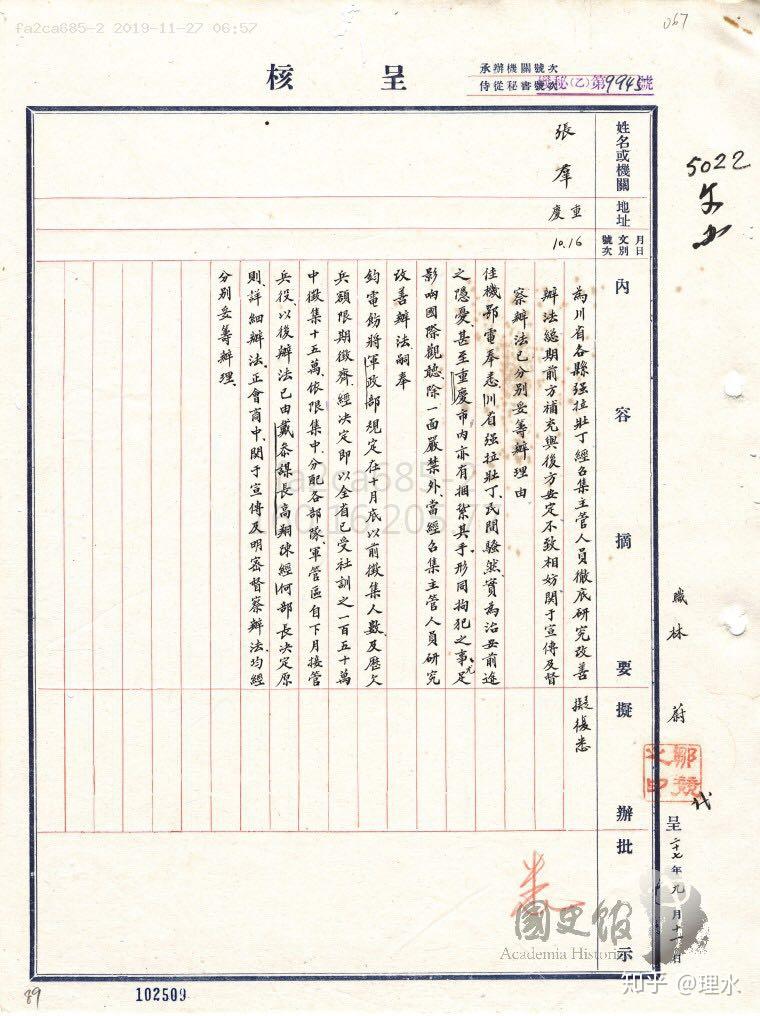 fa2ca685-2 2019-11-27 06:57
067
呈核
承辦機關號次
侍從秘書號次
機秘(乙)第9945號
5022
姓名或機關
張羣
地址
重慶
月日文別號次
10.16
內容摘要
為川省各縣强拉壯丁經召集主管人員徹底研究改善
辦法總期前方補充與後方安定不致相妨關于宣傳及督
察辦法已分別妥籌辦理由
佳機鄂電奉悉川省强拉壯丁、民間騷然實為治安前途
之隱憂、甚至重慶市內亦有捆縶其手、形同拘犯之事、尤足
影响國際觀聽、除一面嚴禁外、當經召集主管人員研究
改善辦法嗣奉
鈞電飭將軍政部規定在十月底以前徵集人數及歷欠
兵額限期徵齊、經決定即以全省已受社訓之一百五十萬
中徵集十五萬、依限集中、分配各部隊、軍管區自下月接管
兵役、以後辦法已由戴參謀長高翔陳經何部長決定原
則、詳細辦法、正會商中、關于宣傳及明密督察辦法、均經
分別妥籌辦理、
擬辦
擬復悉
批示
悉
職林蔚
鄒競之印
代
呈
二十七年九月十一日
fa2ca685-2
國史館
Academia Historica
89
102509
知乎 @理水